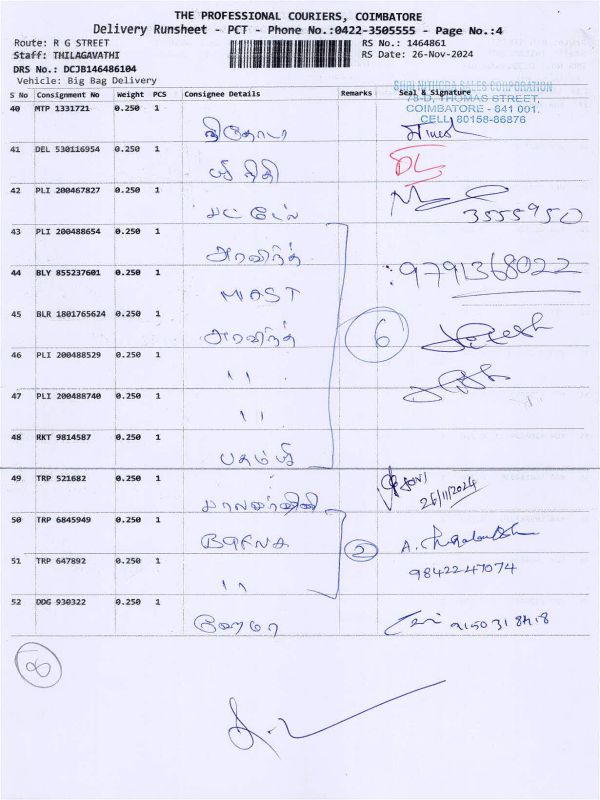 THE PROFESSIONAL COURIERS, COIMBATORE
Delivery Runsheet - PCT - Phone No.:0422-3505555 - Page No.:4
Route: R G STREET
RS No.: 1464861
Staff: THILAGAVATHI
RS Date: 26-Nov-2024
DRS No.: DCJB146486104
Vehicle: Big Bag Delivery
SALES CORPORATION
S No Consignment No Weight PCS Consignee Details Remarks Seal & Signature
78-D, THOMAS STREET,
COIMBATORE - 641 001.
CELL: 80158-86876
40 MTP 1331721 0.250 1
41 DEL 530116954 0.250 1
DL
42 PLI 200467827 0.250 1
பட்டேல்
3555950
43 PLI 200488654 0.250 1
அரவிந்த்
9791368022
44 BLY 855237601 0.250 1
MAST
45 BLR 1801765624 0.250 1
அரவிந்த்
6
46 PLI 200488529 0.250 1
11
47 PLI 200488740 0.250 1
11
48 RKT 9814587 0.250 1
49 TRP 521682 0.250 1
26/11/2024
50 TRP 6845949 0.250 1
2
51 TRP 647892 0.250 1
11
9842247074
52 DDG 930322 0.250 1
ஹேமா
8